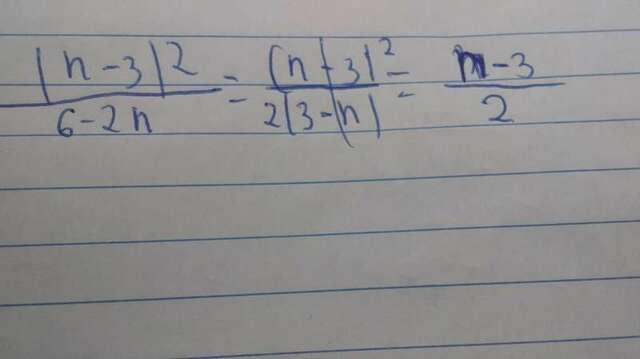 (n-3)2/6-2n = (n-3)²/2(3-n) = n-3/2